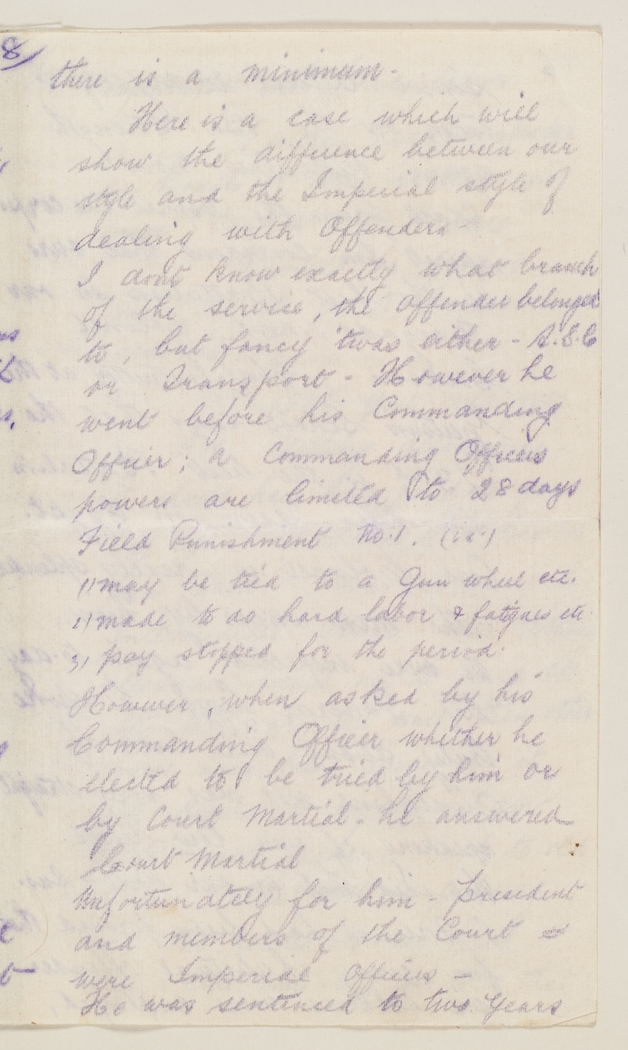 8
there is a minimum -
Here is a case which will
show the difference between our
style and the Imperial style of
dealing with Offenders -
I dont know exactly what branch
of the service, the offender belonged
to, but fancy 'twas either - A.S.C
or Transport - However he
went before his Commanding
Officer; a Commanding Officers
powers are limited to 28 days
Field Punishment No. 1. (i.e.)
1) may be tied to a Gun wheel etc.
2) made to do hard labor & fatigues etc.
3) pay stopped for the period.
However, when asked by his
Commanding Officer whether he
elected to be tried by him or
by Court Martial - he answered
Court Martial
Unfortunately for him - President
and members of the Court
were Imperial Officers -
He was sentenced to two Years